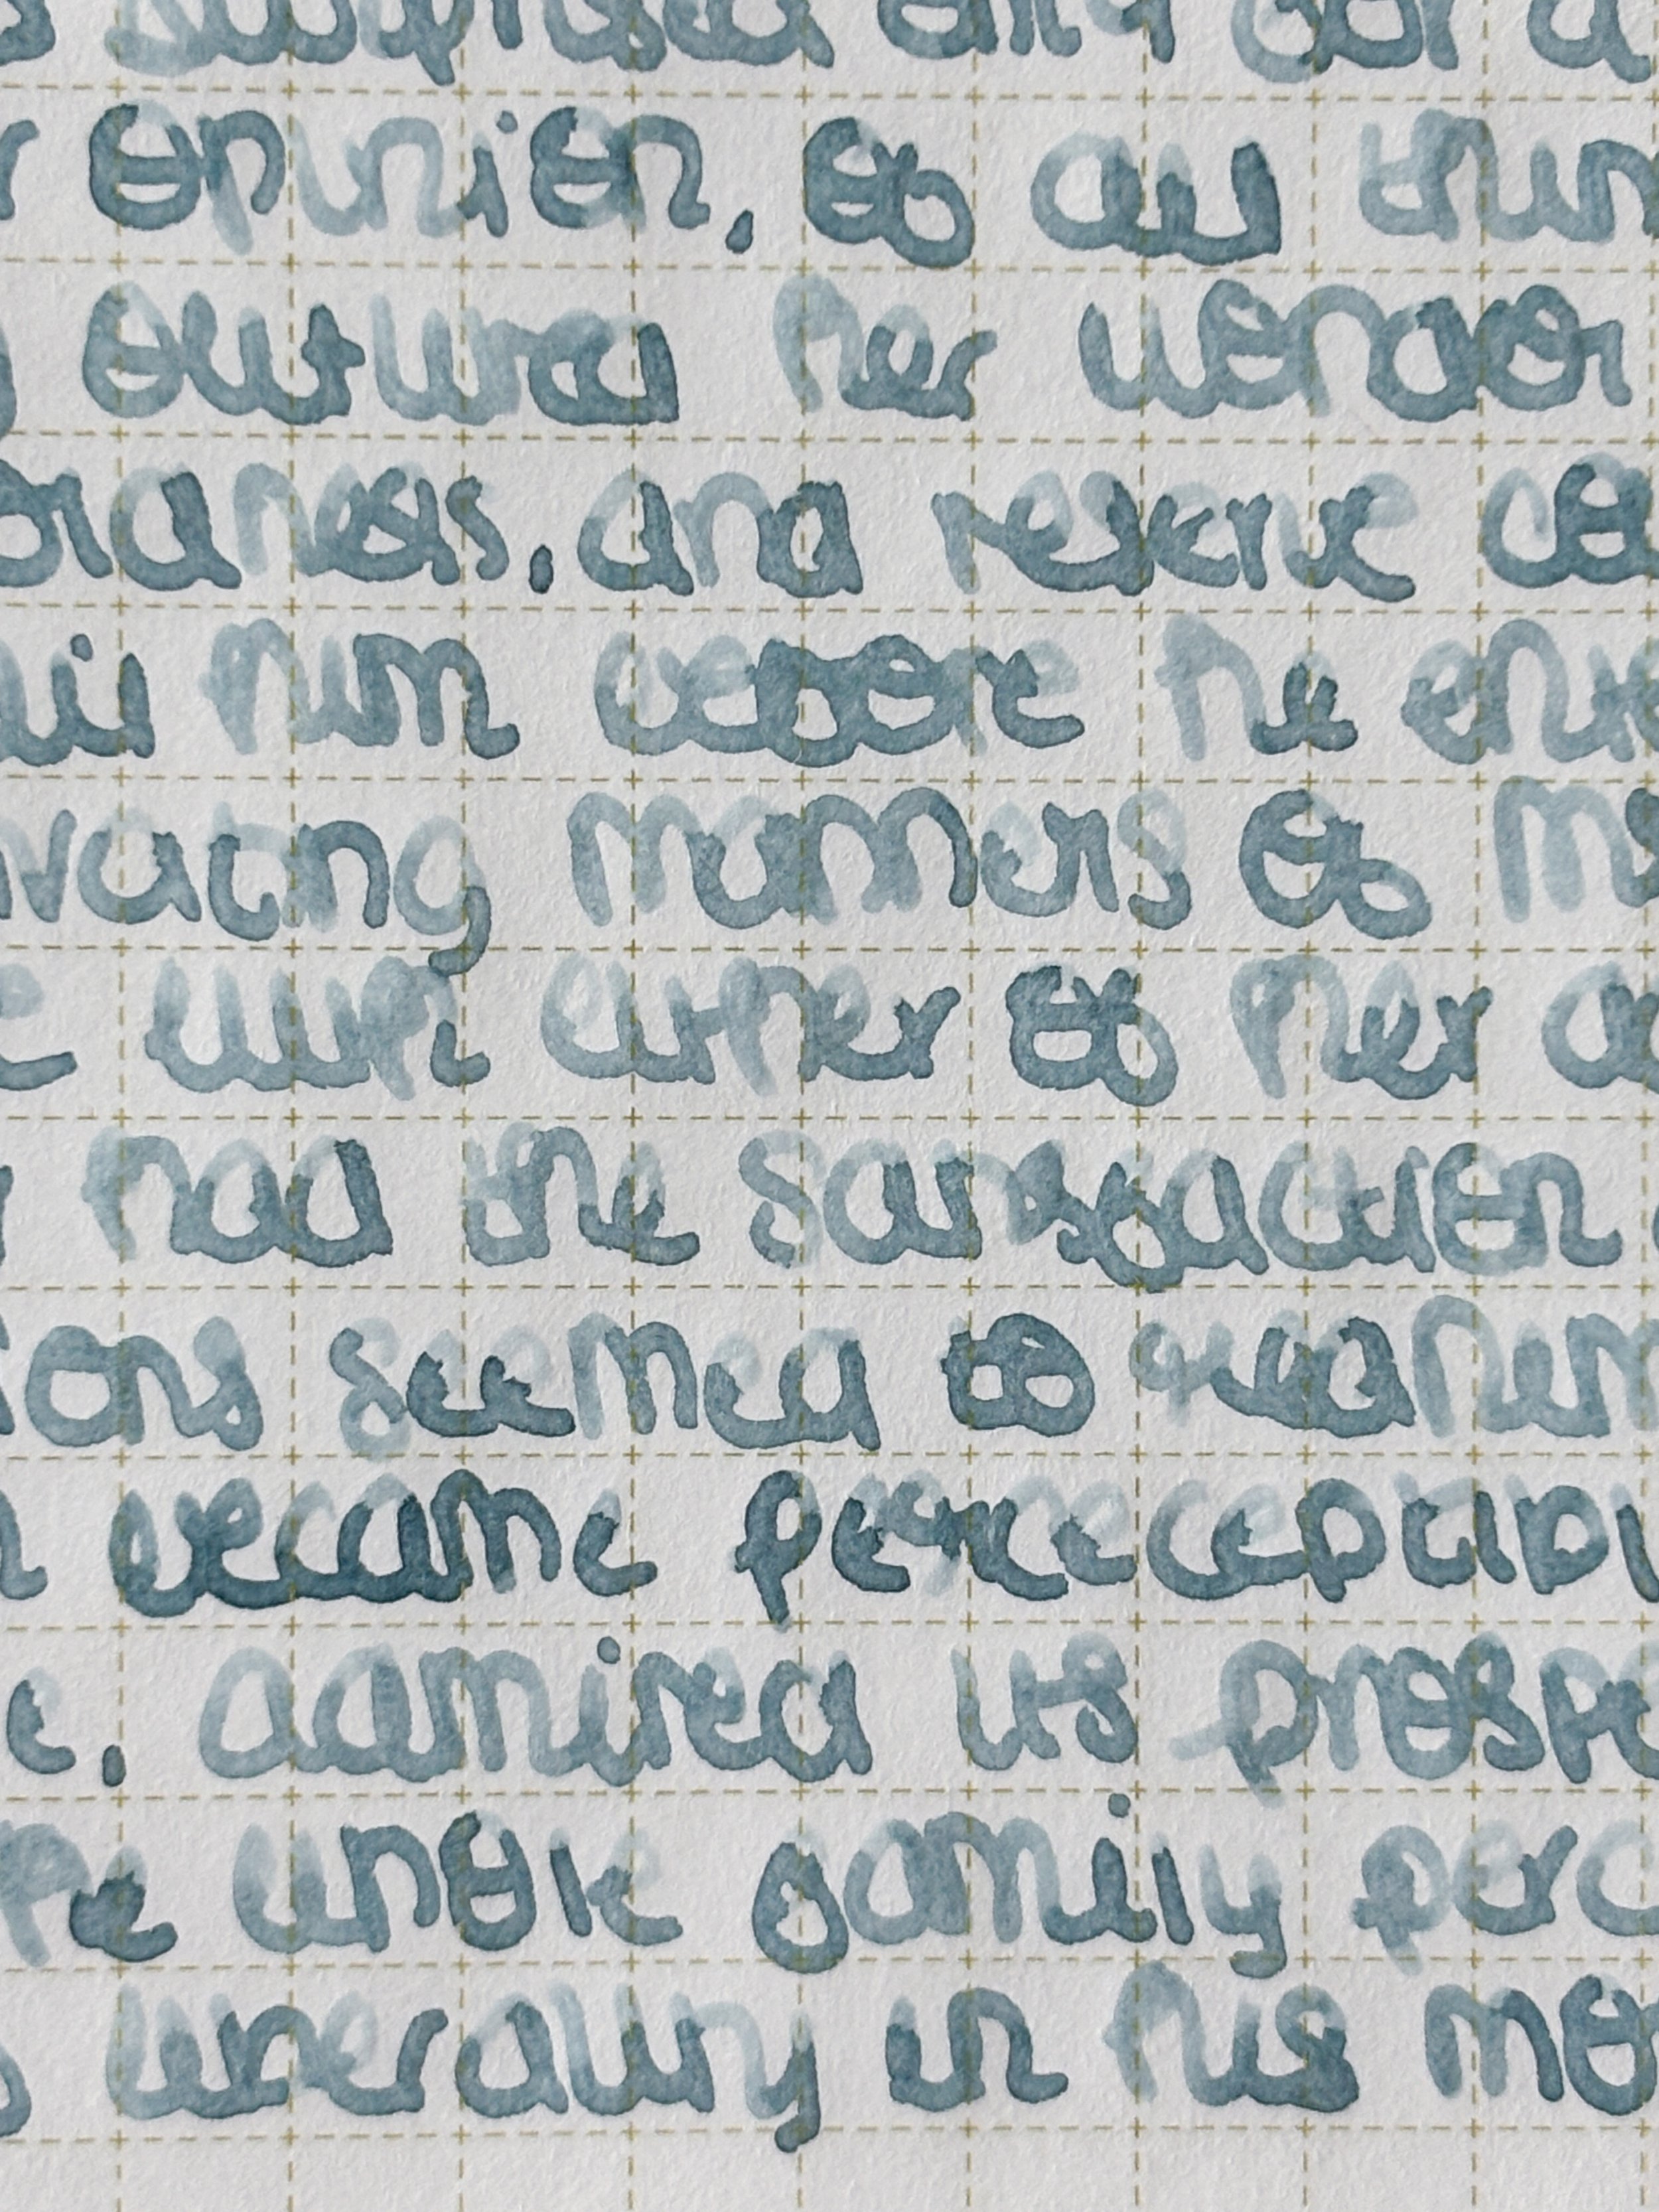 surprised only for a
r opinion, of all thin
g outlived her wonder
oldness, and reserve co
ail him before he ente
ivating manners of Mrs
e with either of her da
r had the satisfaction o
ions seemed to reanim
n became perceceptibl
e, admired its prospe
he whole family perc
g liberality in his mot